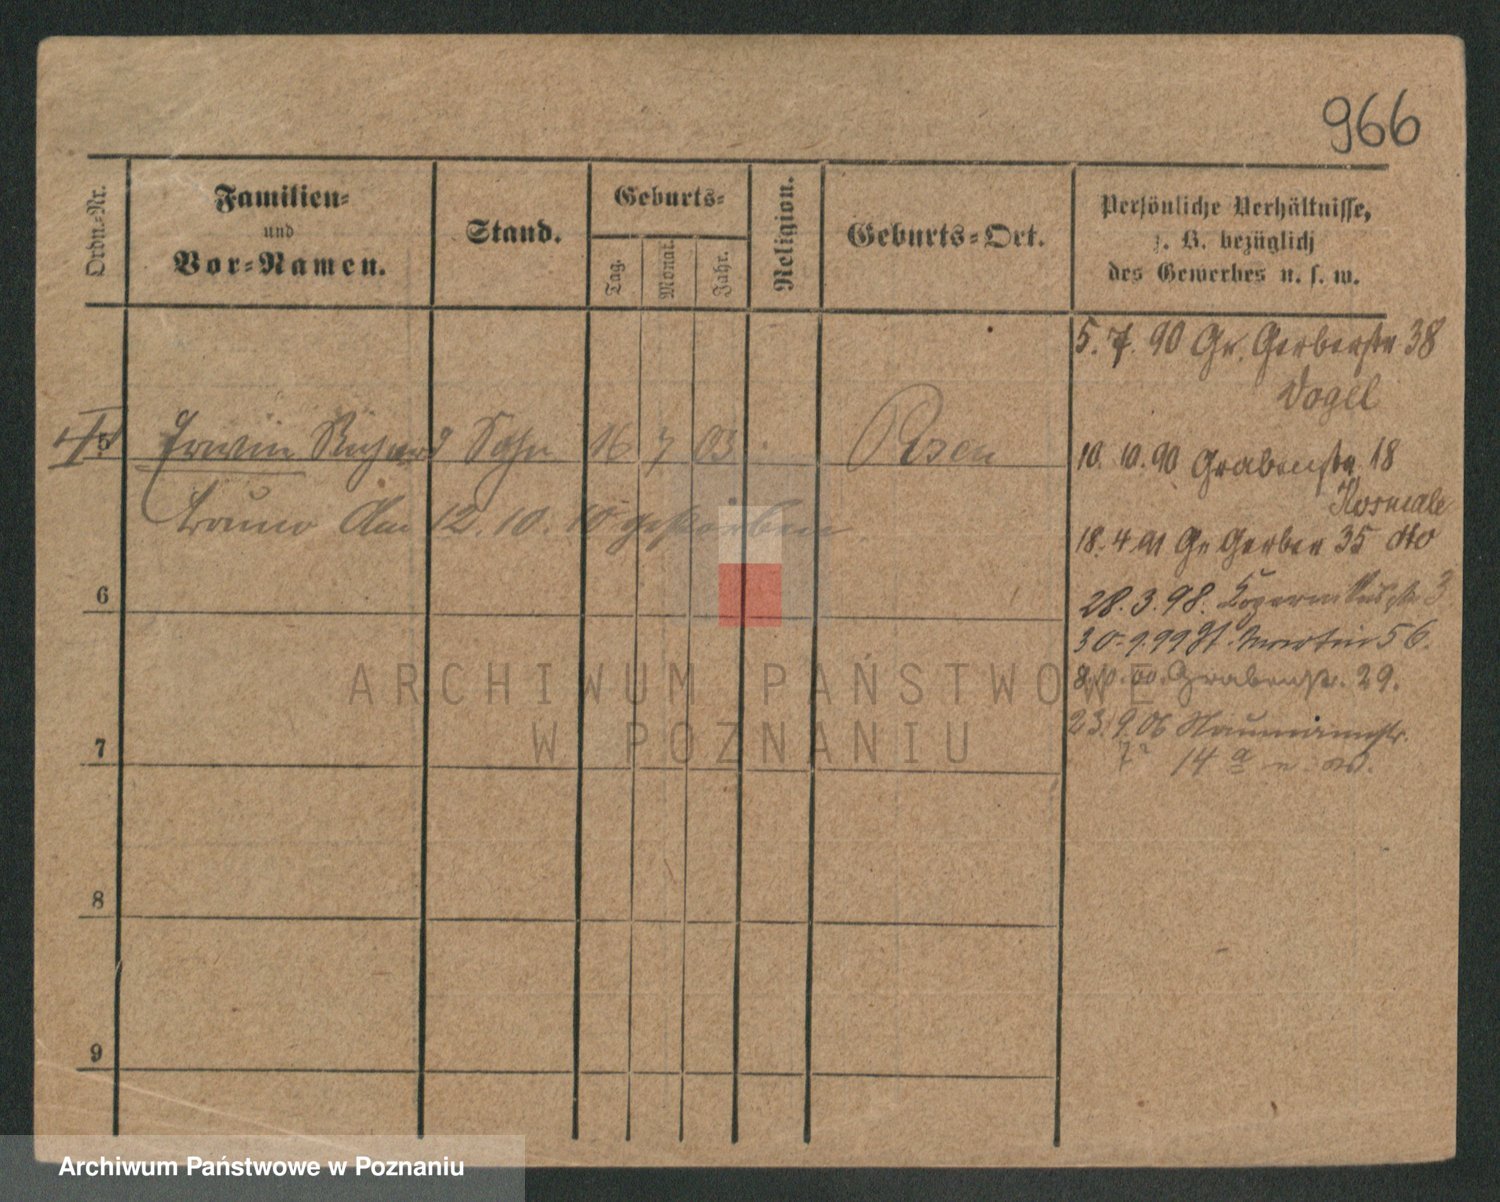 966
Ordn.-Nr.
Familien-
und
Vor-Namen.
Stand.
Geburts-
Tag.
Monat.
Jahr.
Religion.
Geburts-Ort.
Persönliche Verhältnisse,
z. B. bezüglich
des Gewerbes u. s. w.
5. 7. 90 Gr. Gerberstr 38
Vogel
5 Erwin Richard Sohn 16 7 03 Posen
Bruno Am 12. 10. 10 gestorben
10. 10. 90 Grabenstr. 18
18. 4. 91 Gr Gerber 35 dto
28. 3. 98. 3
30. 9. 99 St. Martin 56.
8. 10. 00. Grabenstr. 29.
23. 9. 06 Naumannstr.
14 a
6
7
8
9
ARCHIWUM PAŃSTWOWE
W POZNANIU
Archiwum Państwowe w Poznaniu